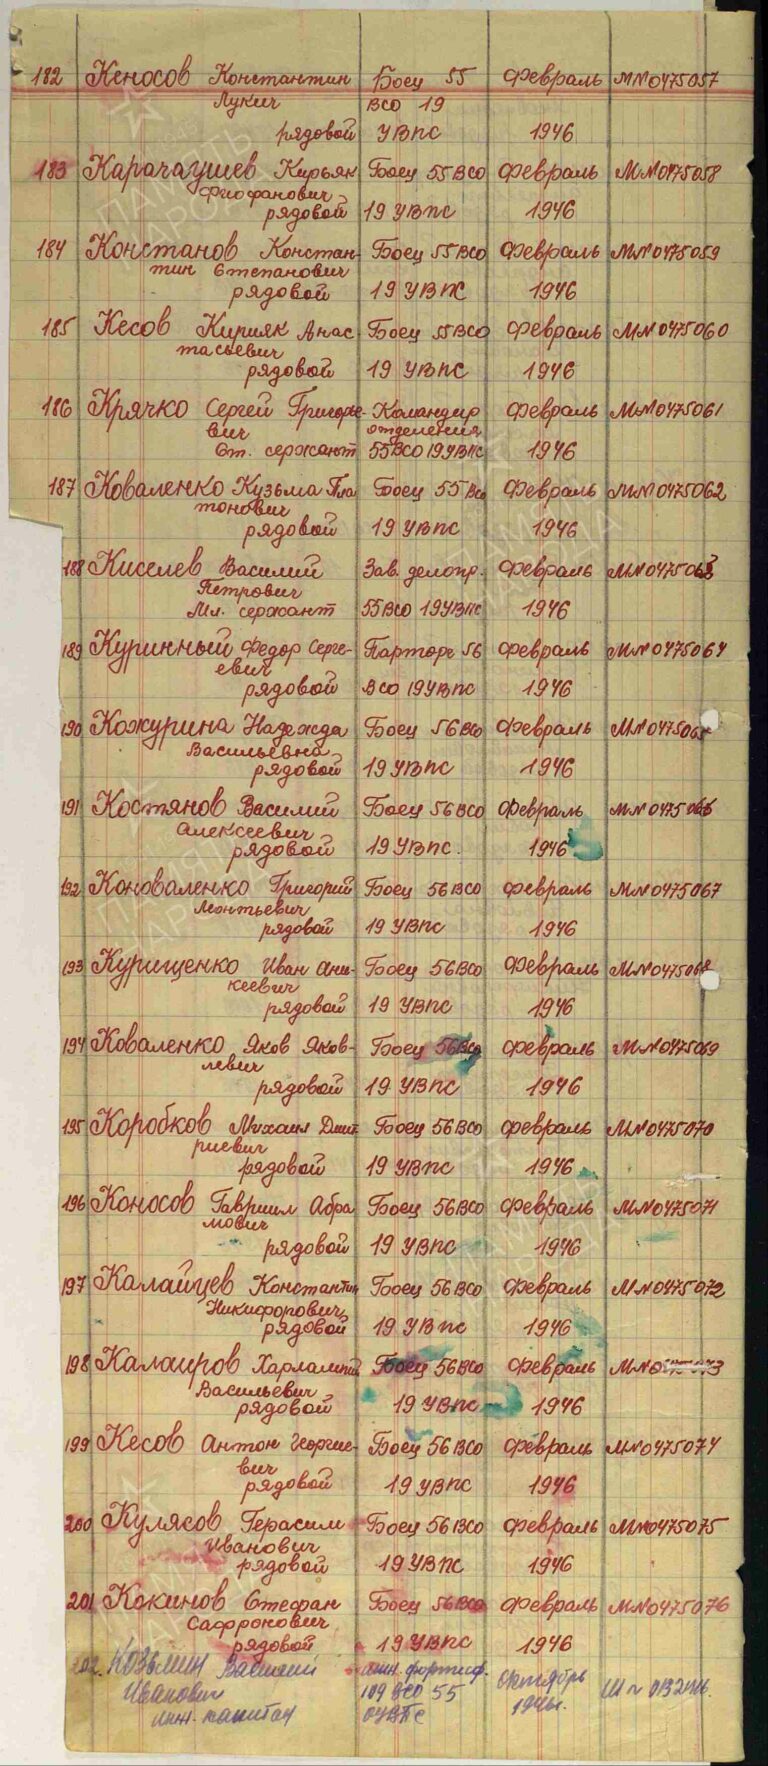 182 Кеносов Константин Боец 55 февраль ММ№0475057
Лукич ВСО 19
рядовой УВПС 1946
183 Карачаушев Кирьяк Боец 55 ВСО февраль ММ№0475058
Феофанович
рядовой 19 УВПС 1946
184 Констанов Констан- Боец 55 ВСО февраль ММ№0475059
тин Степанович
рядовой 19 УВПС 1946
185 Кесов Кирияк Анас- Боец 55 ВСО февраль ММ№0475060
тасьевич
рядовой 19 УВПС 1946
186 Крячко Сергей Григорье- Командир февраль ММ№0475061
вич отделения
Ст. сержант 55 ВСО 19 УВПС 1946
187 Коваленко Кузьма Пла Боец 55 ВСО февраль ММ№0475062
тонович
рядовой 19 УВПС 1946
188 Киселев Василий Зав. делопр. февраль ММ№0475063
Петрович
Мл. сержант 55 ВСО 19 УВПС 1946
189 Куринный Федор Серге- Парторг 56 февраль ММ№0475064
евич
рядовой ВСО 19 УВПС 1946
190 Кожурина Надежда Боец 56 ВСО февраль ММ№0475065
Васильевна
рядовой 19 УВПС 1946
191 Костянов Василий Боец 56 ВСО февраль ММ№0475066
Алексеевич
рядовой 19 УВПС. 1946
192 Коноваленко Григорий Боец 56 ВСО февраль ММ№0475067
Леонтьевич
рядовой 19 УВПС 1946
193 Курищенко Иван Ани- Боец 56 ВСО февраль ММ№0475068
кеевич
рядовой 19 УВПС 1946
194 Коваленко Яков Яков- Боец 56 ВСО февраль ММ№0475069
левич
рядовой 19 УВПС 1946
195 Коробков Михаил Дмит Боец 56 ВСО февраль ММ№0475070
риевич
рядовой 19 УВПС 1946
196 Коносов Гавриил Абра Боец 56 ВСО февраль ММ№0475071
мович
рядовой 19 УВПС 1946
197 Калайцев Константин Боец 56 ВСО февраль ММ№0475072
Никифорович
рядовой 19 УВПС 1946
198 Калаиров Харлампий Боец 56 ВСО февраль ММ№0475073
Васильевич
рядовой 19 УВПС 1946
199 Кесов Антон Георгие- Боец 56 ВСО февраль ММ№0475074
вич
рядовой 19 УВПС 1946
200 Кулясов Герасим Боец 56 ВСО февраль ММ№0475075
Иванович
рядовой 19 УВПС 1946
201 Кокинов Стефан Боец 56 ВСО февраль ММ№0475076
Сафронович
рядовой 19 УВПС 1946
202. Козьмин Василий инж. фортиф. октябрь
Иванович 109 ВСО 55 1946г.
инж. капитан ОУВПС